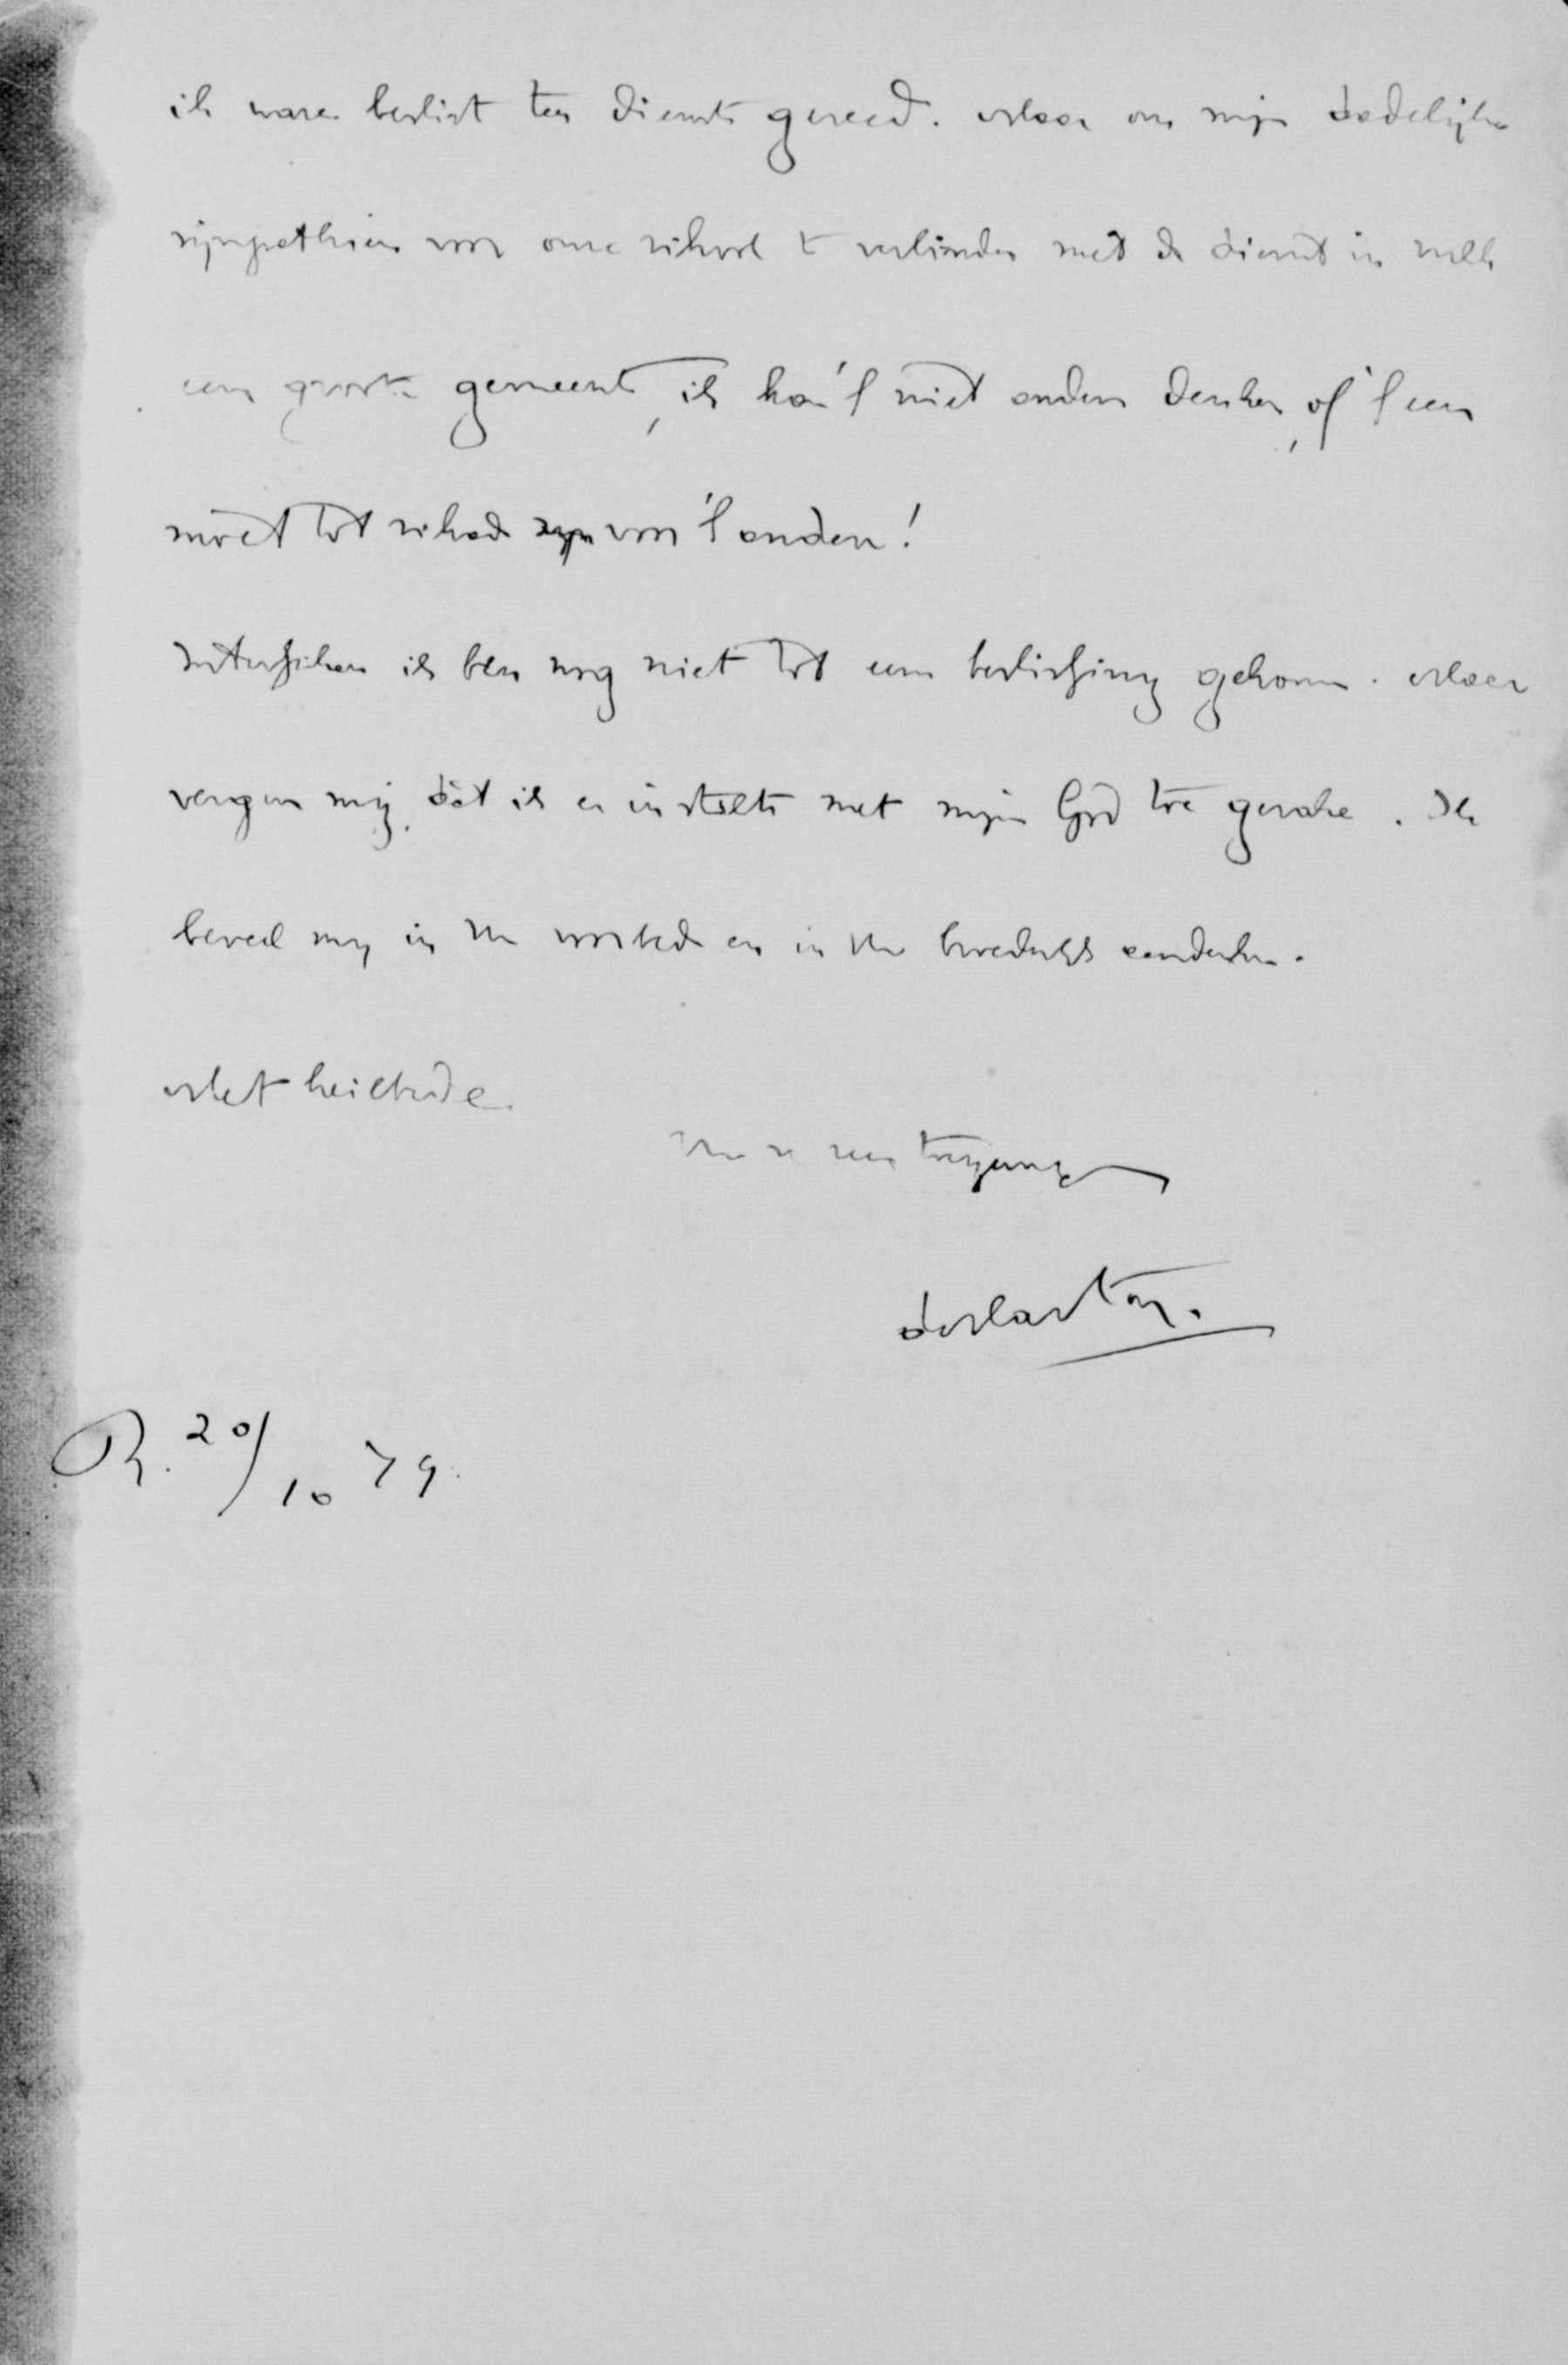 ik ware beslist ten dienste gereed. Maar om mijn dadelijke
sympathieën voor onze school te verbinden met de dienst in zulk
een groote gemeente, ik kan 't niet anders denken, of 't een
moet tot schade zijn voor 't andere!
Intusschen ik ben nog niet tot een beslissing gekomen. Maar
vergun mij, dat ik er in stilte met mijn God toe gerake. Ik
beveel mij in Uw voorbede en in Uw broederlijk aandenken.
Met heilbede
Uw toegenegen
R. 20/10 79.